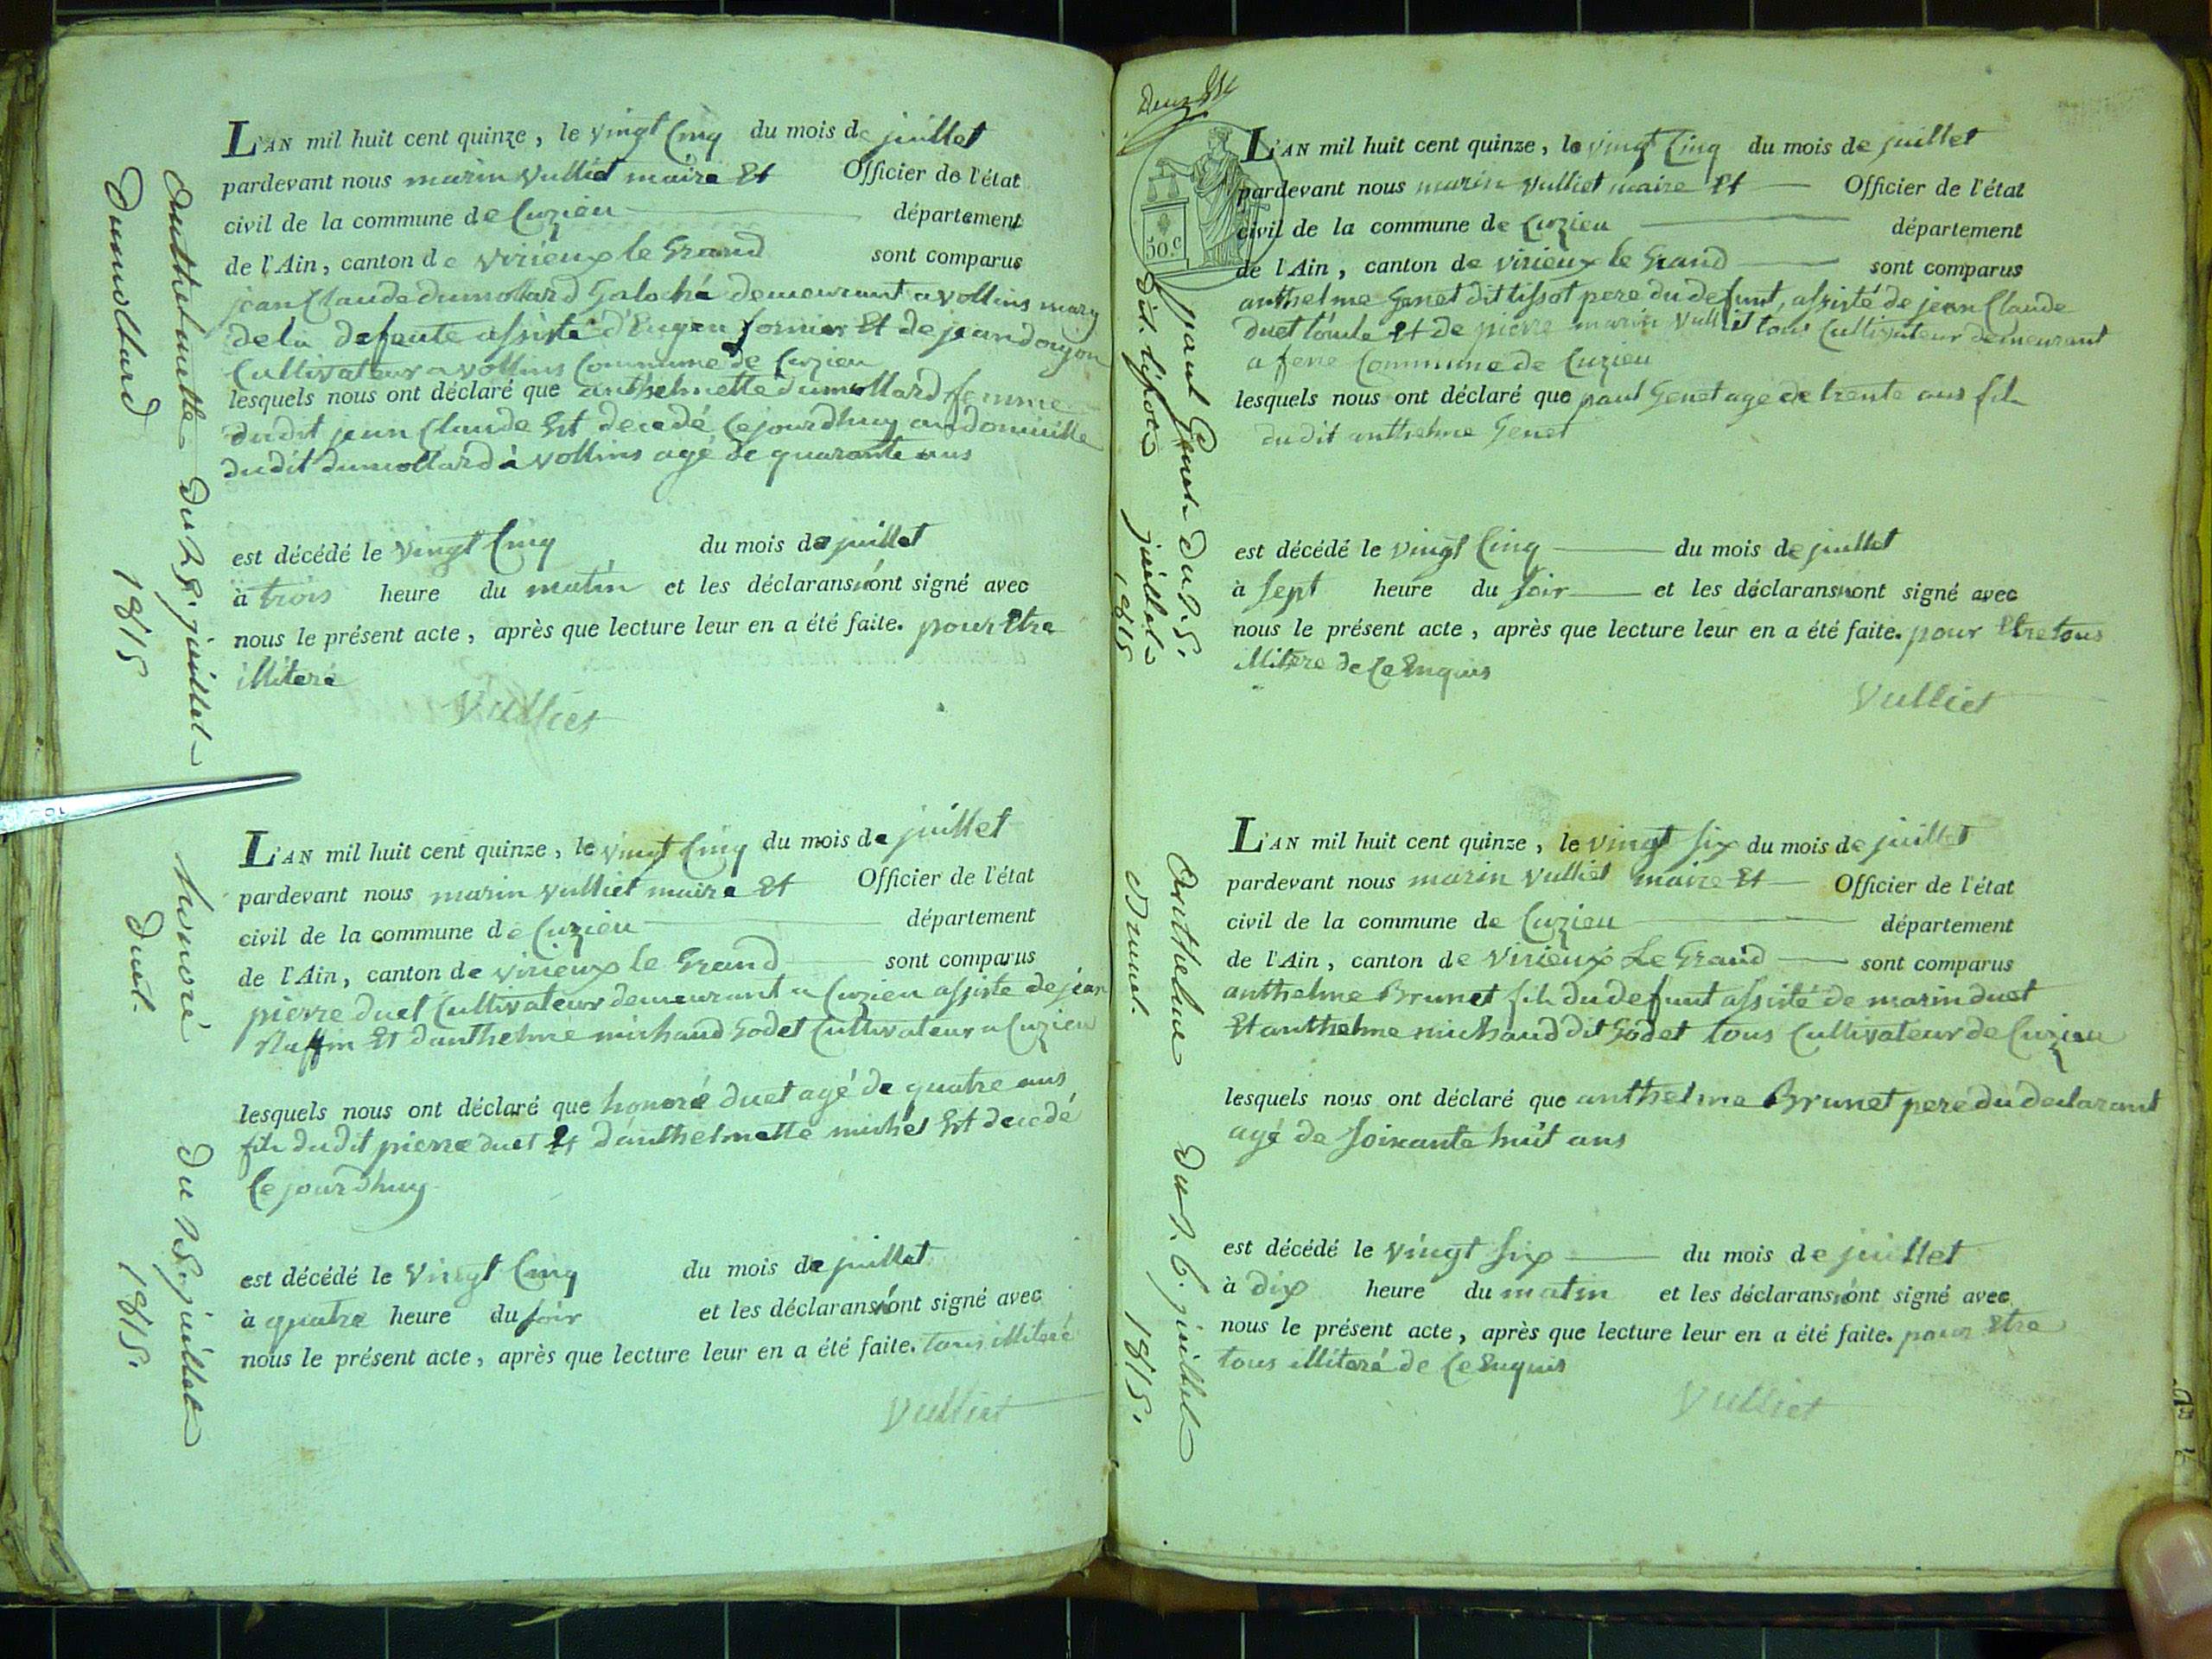 L'AN mil huit cent quinze, le vingt Cinq du mois de juillet
pardevant nous marin vulliet maire Et Officier de l'état
civil de la commune de Cuzieu département
de l'Ain, canton de virieux le Grand sont comparus
jean Claude dumollard Galoché demeurant a vollins mary
de la defunte assisté d'Eugen fornier Et de jean douyon
Cultivateur a vollins Commune de Cuzieu
lesquels nous ont déclaré que anthelmette dumollard femme
dudit jean Claude Est decedé Cejourdhuy au domicille
dudit dumollard à vollins agé de quarante ans
est décédé le vingt Cinq du mois de juillet
à trois heure du matin et les déclarans n'ont signé avec
nous le présent acte, après que lecture leur en a été faite. pour Etre
illiteré
Vulliet
Anthelmette Dumollard
du 25. juillet 1815
L'AN mil huit cent quinze, le vingt Cinq du mois de juillet
pardevant nous marin vulliet maire Et Officier de l'état
civil de la commune de Cuzieu département
de l'Ain, canton de virieux le Grand sont comparus
pierre duet Cultivateur demeurant a Cuzieu assiste de jean
Ruffin Et danthelme michaud Godet Cultivateur a Cuzieu
lesquels nous ont déclaré que honoré duet agé de quatre ans
fils dudit pierre duet Et d'anthelmette michel Est decedé
Cejourdhuy
est décédé le Vingt Cinq du mois de juillet
à quatre heure du soir et les déclarans n'ont signé avec
nous le présent acte, après que lecture leur en a été faite. tous illiteré
Vulliet
honoré Duet.
du 25 juillet 1815.
50.c
L'AN mil huit cent quinze, le vingt Cinq du mois de juillet
pardevant nous marin vulliet maire Et Officier de l'état
civil de la commune de Cuzieu département
de l'Ain, canton de virieux le Grand sont comparus
anthelme Genet dit tissot pere du defunt, assisté de jean Claude
duet l'oncle Et de pierre marin Vulliet tous Cultivateur demeurant
a Commune de Cuzieu
lesquels nous ont déclaré que paul Genet agé de trente ans fils
du dit anthelme Genet
est décédé le vingt Cinq du mois de juillet
à sept heure du soir et les déclarans n'ont signé avec
nous le présent acte, après que lecture leur en a été faite. pour Etre tous
illitere de Ce Enquis
Vulliet
paul Genet dit tissot
du 25. juillet 1815
L'AN mil huit cent quinze, le vingt six du mois de juillet
pardevant nous marin Vulliet maire Et Officier de l'état
civil de la commune de Cuzieu département
de l'Ain, canton de Virieux Le Grand sont comparus
anthelme Brunet fils du defunt assisté de marin duet
Et anthelme michaud dit Godet tous Cultivateur de Cuzieu
lesquels nous ont déclaré que anthelme Brunet pere du declarant
agé de soixante huit ans
est décédé le vingt six du mois de juillet
à dix heure du matin et les déclarans n'ont signé avec
nous le présent acte, après que lecture leur en a été faite. pour Etre
tous illiteré de Ce Enquis
Vulliet
Anthelme Brunet.
du 26. juillet 1815.